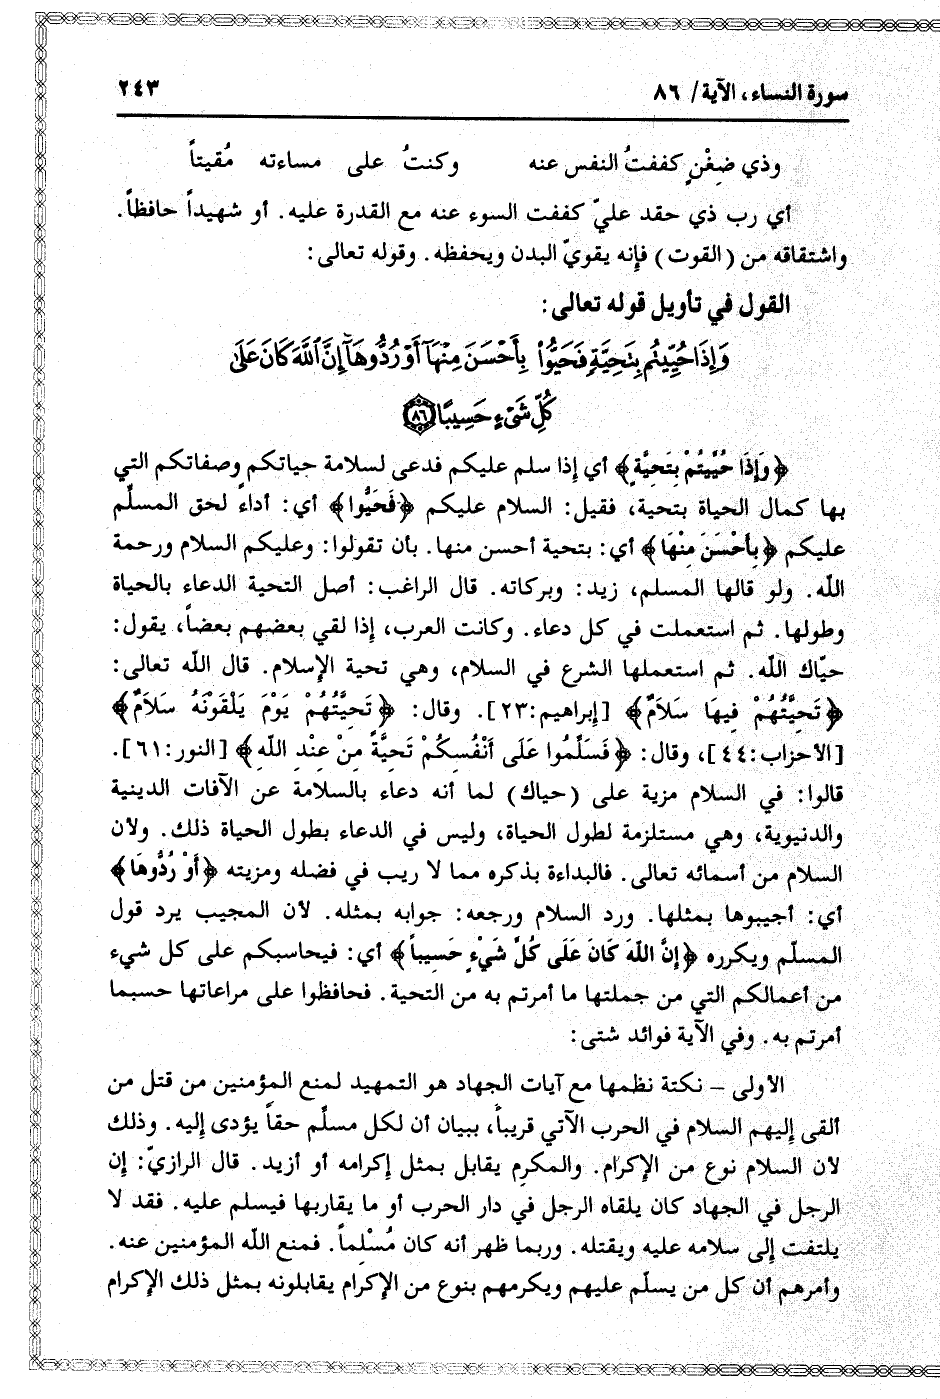 سورة النساء، الآية/ ٨٦ ٢٤٣
وذي ضِغْنٍ كففتُ النفس عنه وكنتُ على مساءته مُقيتاً
أي رب ذي حقد عليّ كففت السوء عنه مع القدرة عليه. أو شهيداً حافظاً.
واشتقاقه من (القوت) فإنه يقويّ البدن ويحفظه. وقوله تعالى:
القول في تأويل قوله تعالى:
وَإِذَا حُيِّيتُم بِتَحِيَّةٍ فَحَيُّوا۟ بِأَحْسَنَ مِنْهَآ أَوْ رُدُّوهَآ إِنَّ ٱللَّهَ كَانَ عَلَىٰ
كُلِّ شَىْءٍ حَسِيبًا ٨٦
﴿وَإِذَا حُيِّيتُمْ بِتَحِيَّةٍ﴾ أي إذا سلم عليكم فدعى لسلامة حياتكم وصفاتكم التي
بها كمال الحياة بتحية، فقيل: السلام عليكم ﴿فَحَيُّوا﴾ أي: أداءً لحق المسلّم
عليكم ﴿بِأَحْسَنَ مِنْهَا﴾ أي: بتحية أحسن منها. بأن تقولوا: وعليكم السلام ورحمة
اللّه. ولو قالها المسلم، زيد: وبركاته. قال الراغب: أصل التحية الدعاء بالحياة
وطولها. ثم استعملت في كل دعاء. وكانت العرب، إذا لقي بعضهم بعضاً، يقول:
حيّاك اللّه. ثم استعملها الشرع في السلام، وهي تحية الإسلام. قال اللّه تعالى:
﴿تَحِيَّتُهُمْ فِيهَا سَلاَمٌ﴾ [إبراهيم:٢٣]. وقال: ﴿تَحِيَّتُهُمْ يَوْمَ يَلْقَوْنَهُ سَلاَمٌ﴾
[الأحزاب:٤٤]، وقال: ﴿فَسَلِّمُوا عَلَى أَنْفُسِكُمْ تَحِيَّةً مِنْ عِنْدِ اللّهِ﴾ [النور:٦١].
قالوا: في السلام مزية على (حياك) لما أنه دعاء بالسلامة عن الآفات الدينية
والدنيوية، وهي مستلزمة لطول الحياة، وليس في الدعاء بطول الحياة ذلك. ولأن
السلام من أسمائه تعالى. فالبداءة بذكره مما لا ريب في فضله ومزيته ﴿أَوْ رُدُّوهَا﴾
أي: أجيبوها بمثلها. ورد السلام ورجعه: جوابه بمثله. لأن المجيب يرد قول
المسلّم ويكرره ﴿إِنَّ اللّهَ كَانَ عَلَى كُلِّ شَيْءٍ حَسِيباً﴾ أي: فيحاسبكم على كل شيء
من أعمالكم التي من جملتها ما أمرتم به من التحية. فحافظوا على مراعاتها حسبما
أمرتم به. وفي الآية فوائد شتى:
الأولى – نكتة نظمها مع آيات الجهاد هو التمهيد لمنع المؤمنين من قتل من
ألقى إليهم السلام في الحرب الآتي قريباً، ببيان أن لكل مسلّم حقاً يؤدى إليه. وذلك
لأن السلام نوع من الإكرام. والمكرِم يقابل بمثل إكرامه أو أزيد. قال الرازيّ: إن
الرجل في الجهاد كان يلقاه الرجل في دار الحرب أو ما يقاربها فيسلم عليه. فقد لا
يلتفت إلى سلامه عليه ويقتله. وربما ظهر أنه كان مُسْلِماً. فمنع اللّه المؤمنين عنه.
وأمرهم أن كل من يسلّم عليهم ويكرمهم بنوع من الإكرام يقابلونه بمثل ذلك الإكرام